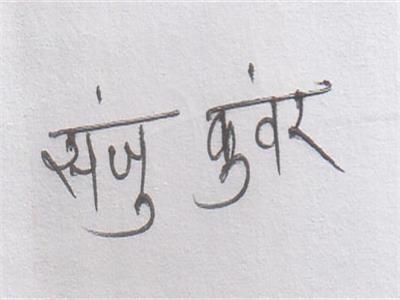 संजु कुंवर